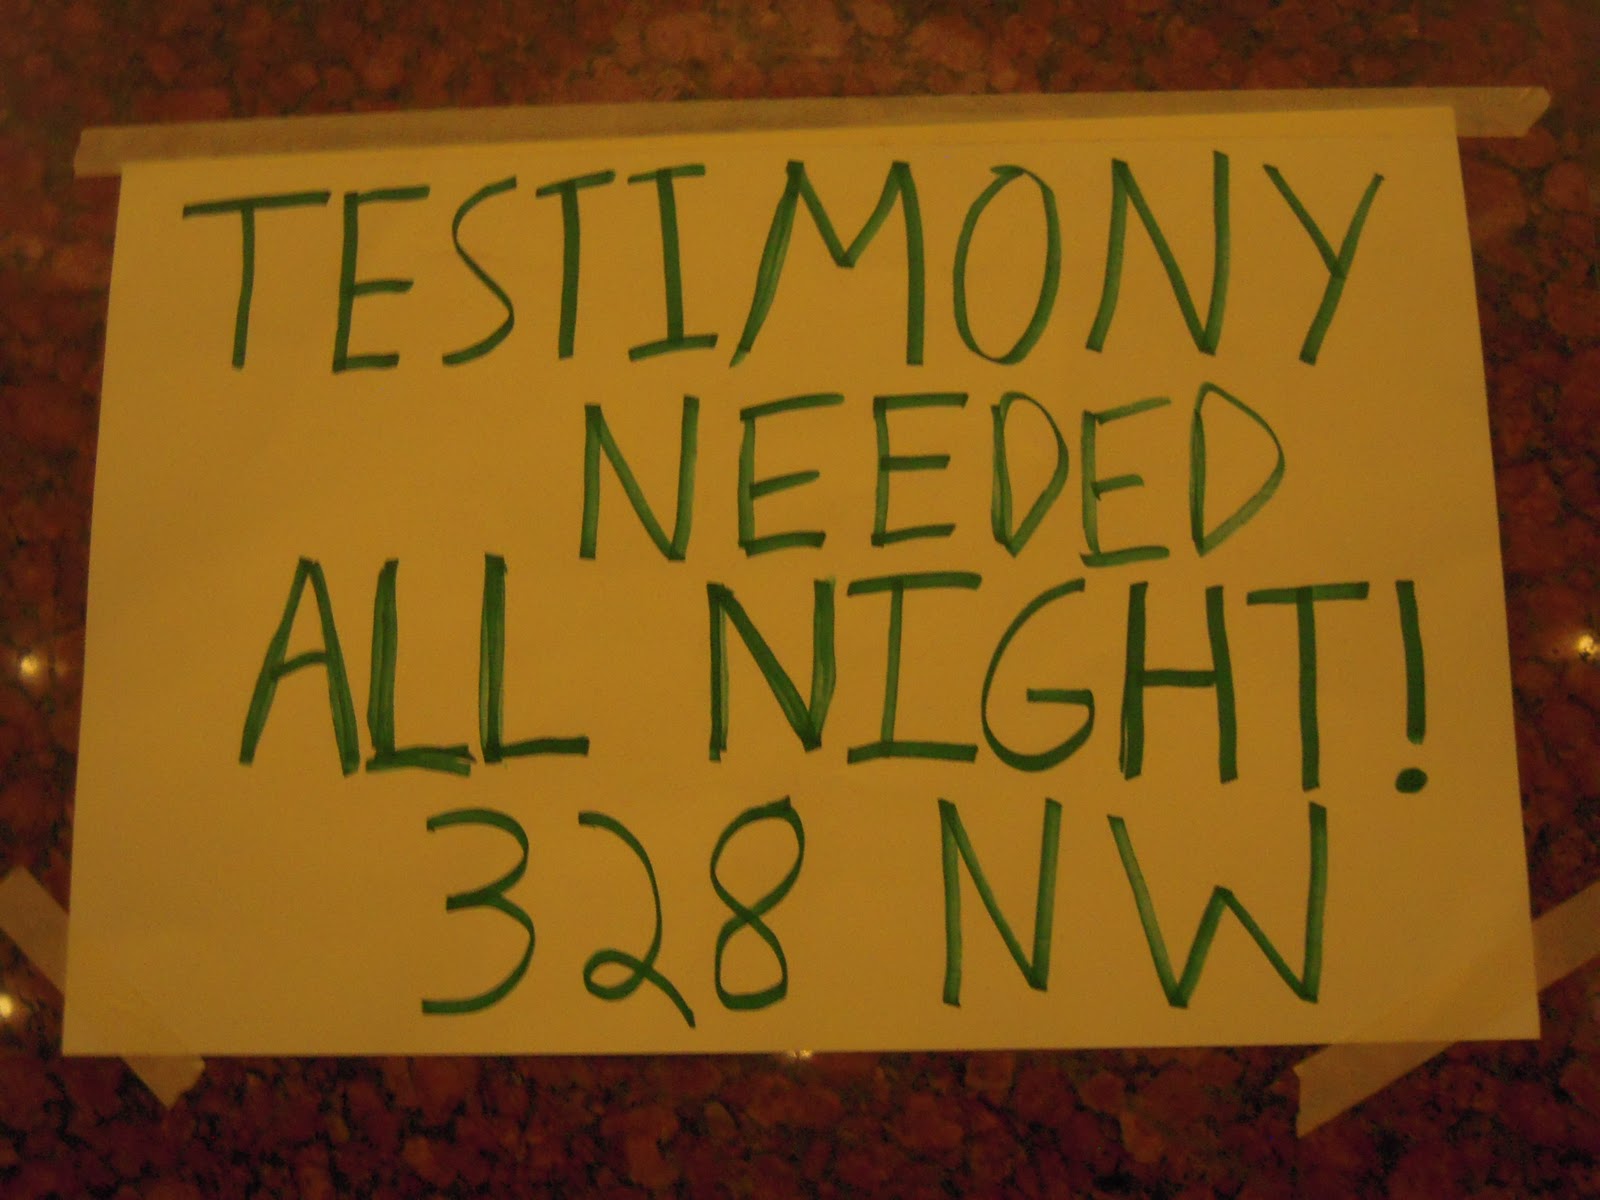 TESTIMONY
NEEDED
ALL NIGHT!
328 NW